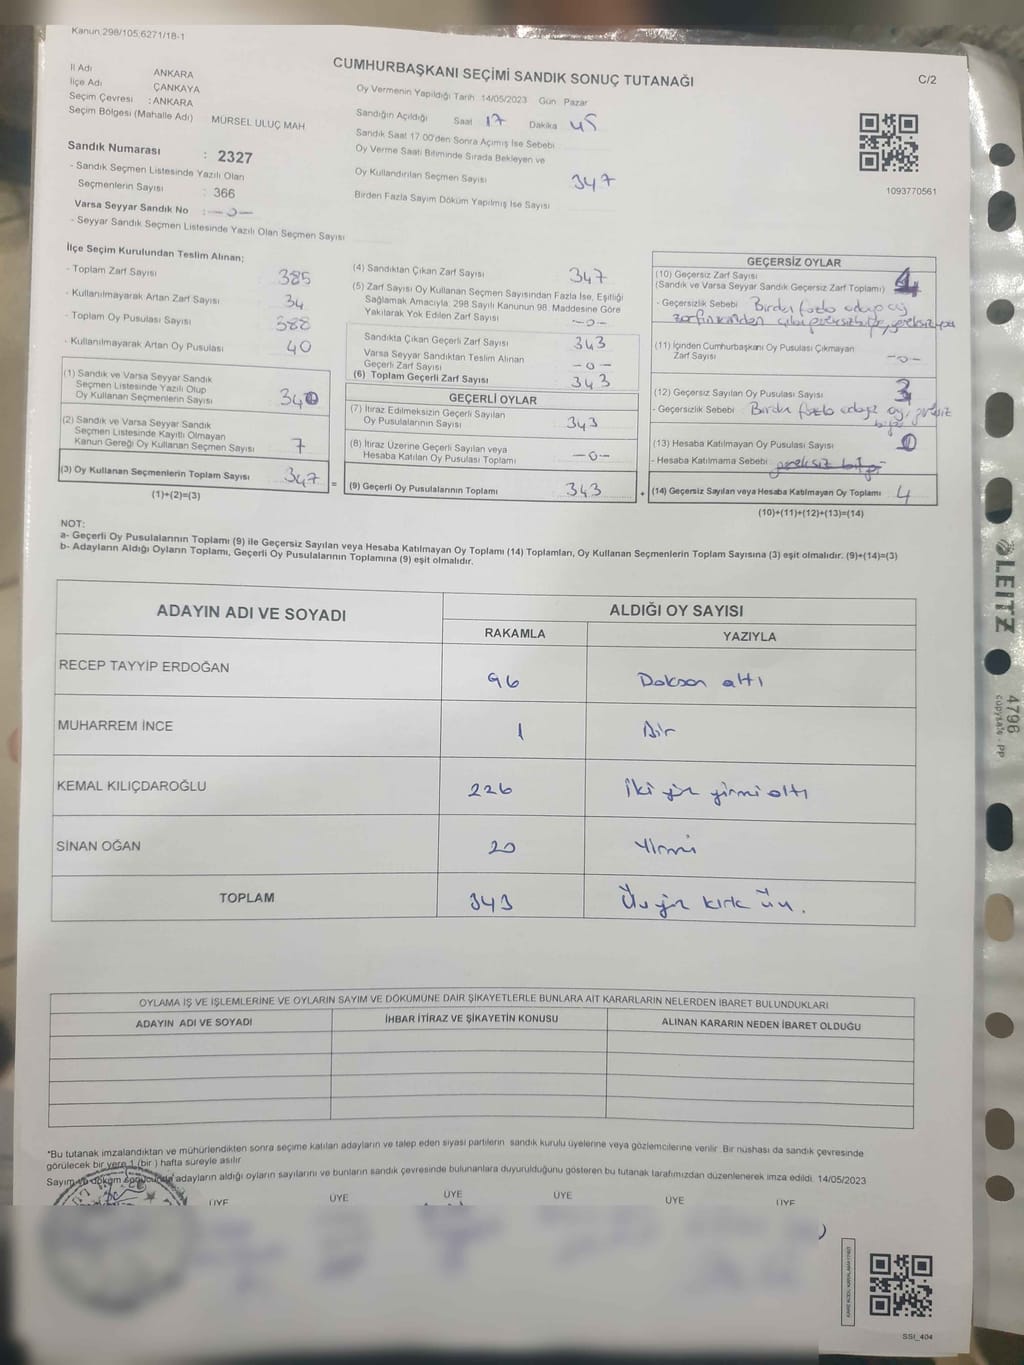 Kanun 298/105,6271/18-1
CUMHURBAŞKANI SEÇİMİ SANDIK SONUÇ TUTANAĞI
C/2
İl Adı ANKARA
İlçe Adı ÇANKAYA
Seçim Çevresi : ANKARA
Seçim Bölgesi (Mahalle Adı) MÜRSEL ULUÇ MAH
Sandık Numarası : 2327
- Sandık Seçmen Listesinde Yazılı Olan
Seçmenlerin Sayısı : 366
Varsa Seyyar Sandık No : -0-
- Seyyar Sandık Seçmen Listesinde Yazılı Olan Seçmen Sayısı
Oy Vermenin Yapıldığı Tarih 14/05/2023 Gün Pazar
Sandığın Açıldığı Saat 17 Dakika 45
Sandık Saat 17.00'den Sonra Açımış İse Sebebi
Oy Verme Saati Bitiminde Sırada Bekleyen ve
Oy Kullandırılan Seçmen Sayısı 347
Birden Fazla Sayım Döküm Yapılmış İse Sayısı
1093770561
İlçe Seçim Kurulundan Teslim Alınan;
- Toplam Zarf Sayısı 385
- Kullanılmayarak Artan Zarf Sayısı 34
- Toplam Oy Pusulası Sayısı 388
- Kullanılmayarak Artan Oy Pusulası 40
(1) Sandık ve Varsa Seyyar Sandık
Seçmen Listesinde Yazılı Olup
Oy Kullanan Seçmenlerin Sayısı 340
(2) Sandık ve Varsa Seyyar Sandık
Seçmen Listesinde Kayıtlı Olmayan
Kanun Gereği Oy Kullanan Seçmen Sayısı 7
(3) Oy Kullanan Seçmenlerin Toplam Sayısı 347
(1)+(2)=(3)
=
(4) Sandıktan Çıkan Zarf Sayısı 347
(5) Zarf Sayısı Oy Kullanan Seçmen Sayısından Fazla İse, Eşitliği
Sağlamak Amacıyla, 298 Sayılı Kanunun 98. Maddesine Göre
Yakılarak Yok Edilen Zarf Sayısı -0-
Sandıkta Çıkan Geçerli Zarf Sayısı 343
Varsa Seyyar Sandıktan Teslim Alınan
Geçerli Zarf Sayısı -0-
(6) Toplam Geçerli Zarf Sayısı 343
GEÇERLİ OYLAR
(7) İtiraz Edilmeksizin Geçerli Sayılan
Oy Pusulalarının Sayısı 343
(8) İtiraz Üzerine Geçerli Sayılan veya
Hesaba Katılan Oy Pusulası Toplamı -0-
(9) Geçerli Oy Pusulalarının Toplamı 343
+
GEÇERSİZ OYLAR
(10) Geçersiz Zarf Sayısı
(Sandık ve Varsa Seyyar Sandık Geçersiz Zarf Toplamı)
- Geçersizlik Sebebi Birden fazla adaya oy
(11) İçinden Cumhurbaşkanı Oy Pusulası Çıkmayan
Zarf Sayısı -0-
(12) Geçersiz Sayılan Oy Pusulası Sayısı 3
- Geçersizlik Sebebi Birden fazla adaya oy,
(13) Hesaba Katılmayan Oy Pusulası Sayısı 0
- Hesaba Katılmama Sebebi
(14) Geçersiz Sayılan veya Hesaba Katılmayan Oy Toplamı 4
(10)+(11)+(12)+(13)=(14)
NOT:
a- Geçerli Oy Pusulalarının Toplamı (9) ile Geçersiz Sayılan veya Hesaba Katılmayan Oy Toplamı (14) Toplamları, Oy Kullanan Seçmenlerin Toplam Sayısına (3) eşit olmalıdır. (9)+(14)=(3)
b- Adayların Aldığı Oyların Toplamı, Geçerli Oy Pusulalarının Toplamına (9) eşit olmalıdır.
ADAYIN ADI VE SOYADI ALDIĞI OY SAYISI
RAKAMLA YAZIYLA
RECEP TAYYİP ERDOĞAN 96 Doksan altı
MUHARREM İNCE 1 Bir
KEMAL KILIÇDAROĞLU 226 İki yüz yirmi altı
SİNAN OĞAN 20 Yirmi
TOPLAM 343 Üç yüz kırk üç.
OYLAMA İŞ VE İŞLEMLERİNE VE OYLARIN SAYIM VE DÖKÜMÜNE DAİR ŞİKAYETLERLE BUNLARA AİT KARARLARIN NELERDEN İBARET BULUNDUKLARI
ADAYIN ADI VE SOYADI İHBAR İTİRAZ VE ŞİKAYETİN KONUSU ALINAN KARARIN NEDEN İBARET OLDUĞU
*Bu tutanak imzalandıktan ve mühürlendikten sonra seçime katılan adayların ve talep eden siyasi partilerin sandık kurulu üyelerine veya gözlemcilerine verilir. Bir nüshası da sandık çevresinde
görülecek bir yere 1 (bir) hafta süreyle asılır.
Sayım ve döküm sonucunda adayların aldığı oyların sayılarını ve bunların sandık çevresinde bulunanlara duyurulduğunu gösteren bu tutanak tarafımızdan düzenlenerek imza edildi. 14/05/2023
ÜYE ÜYE ÜYE ÜYE ÜYE ÜYE
SSI_404
LEITZ
4796
copysafe - PP